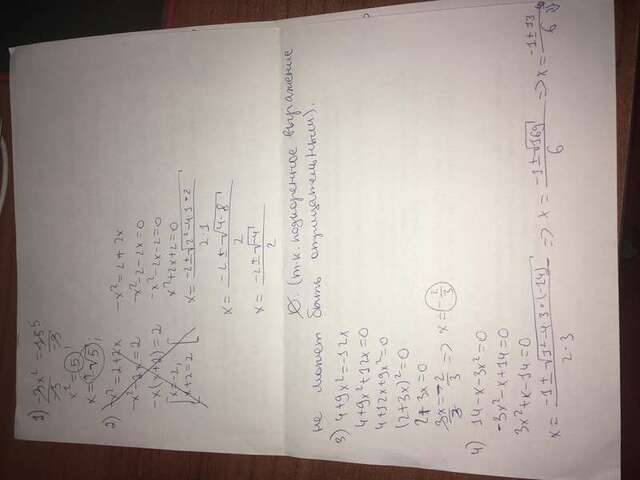 1) -3x² = -15
-3 -3
x² = 5
x = ±√5
2) -x² = 2+2x
-x² - 2x = 2
-x(x+2) = 2
[x = -2,
x+2 = 2
-x² = 2+2x
-x² - 2 - 2x = 0
-x² - 2x - 2 = 0
x² + 2x + 2 = 0
x = -2±√2²-4·1·2
2·1
x = -2±√4-8
2
x = -2±√-4
2
Ø. (т.к. подкоренное выражение
не может быть отрицательным).
3) 4+9x² = -12x
4+9x²+12x = 0
4+12x+9x² = 0
(2+3x)² = 0
2+3x = 0
3x = -2 => x = -2/3
3 3
4) 14 - x - 3x² = 0
-3x² - x + 14 = 0
3x² + x - 14 = 0
x = -1±√1²-4·3·(-14) => x = -1±√169 => x = -1±13
2·3 6 6